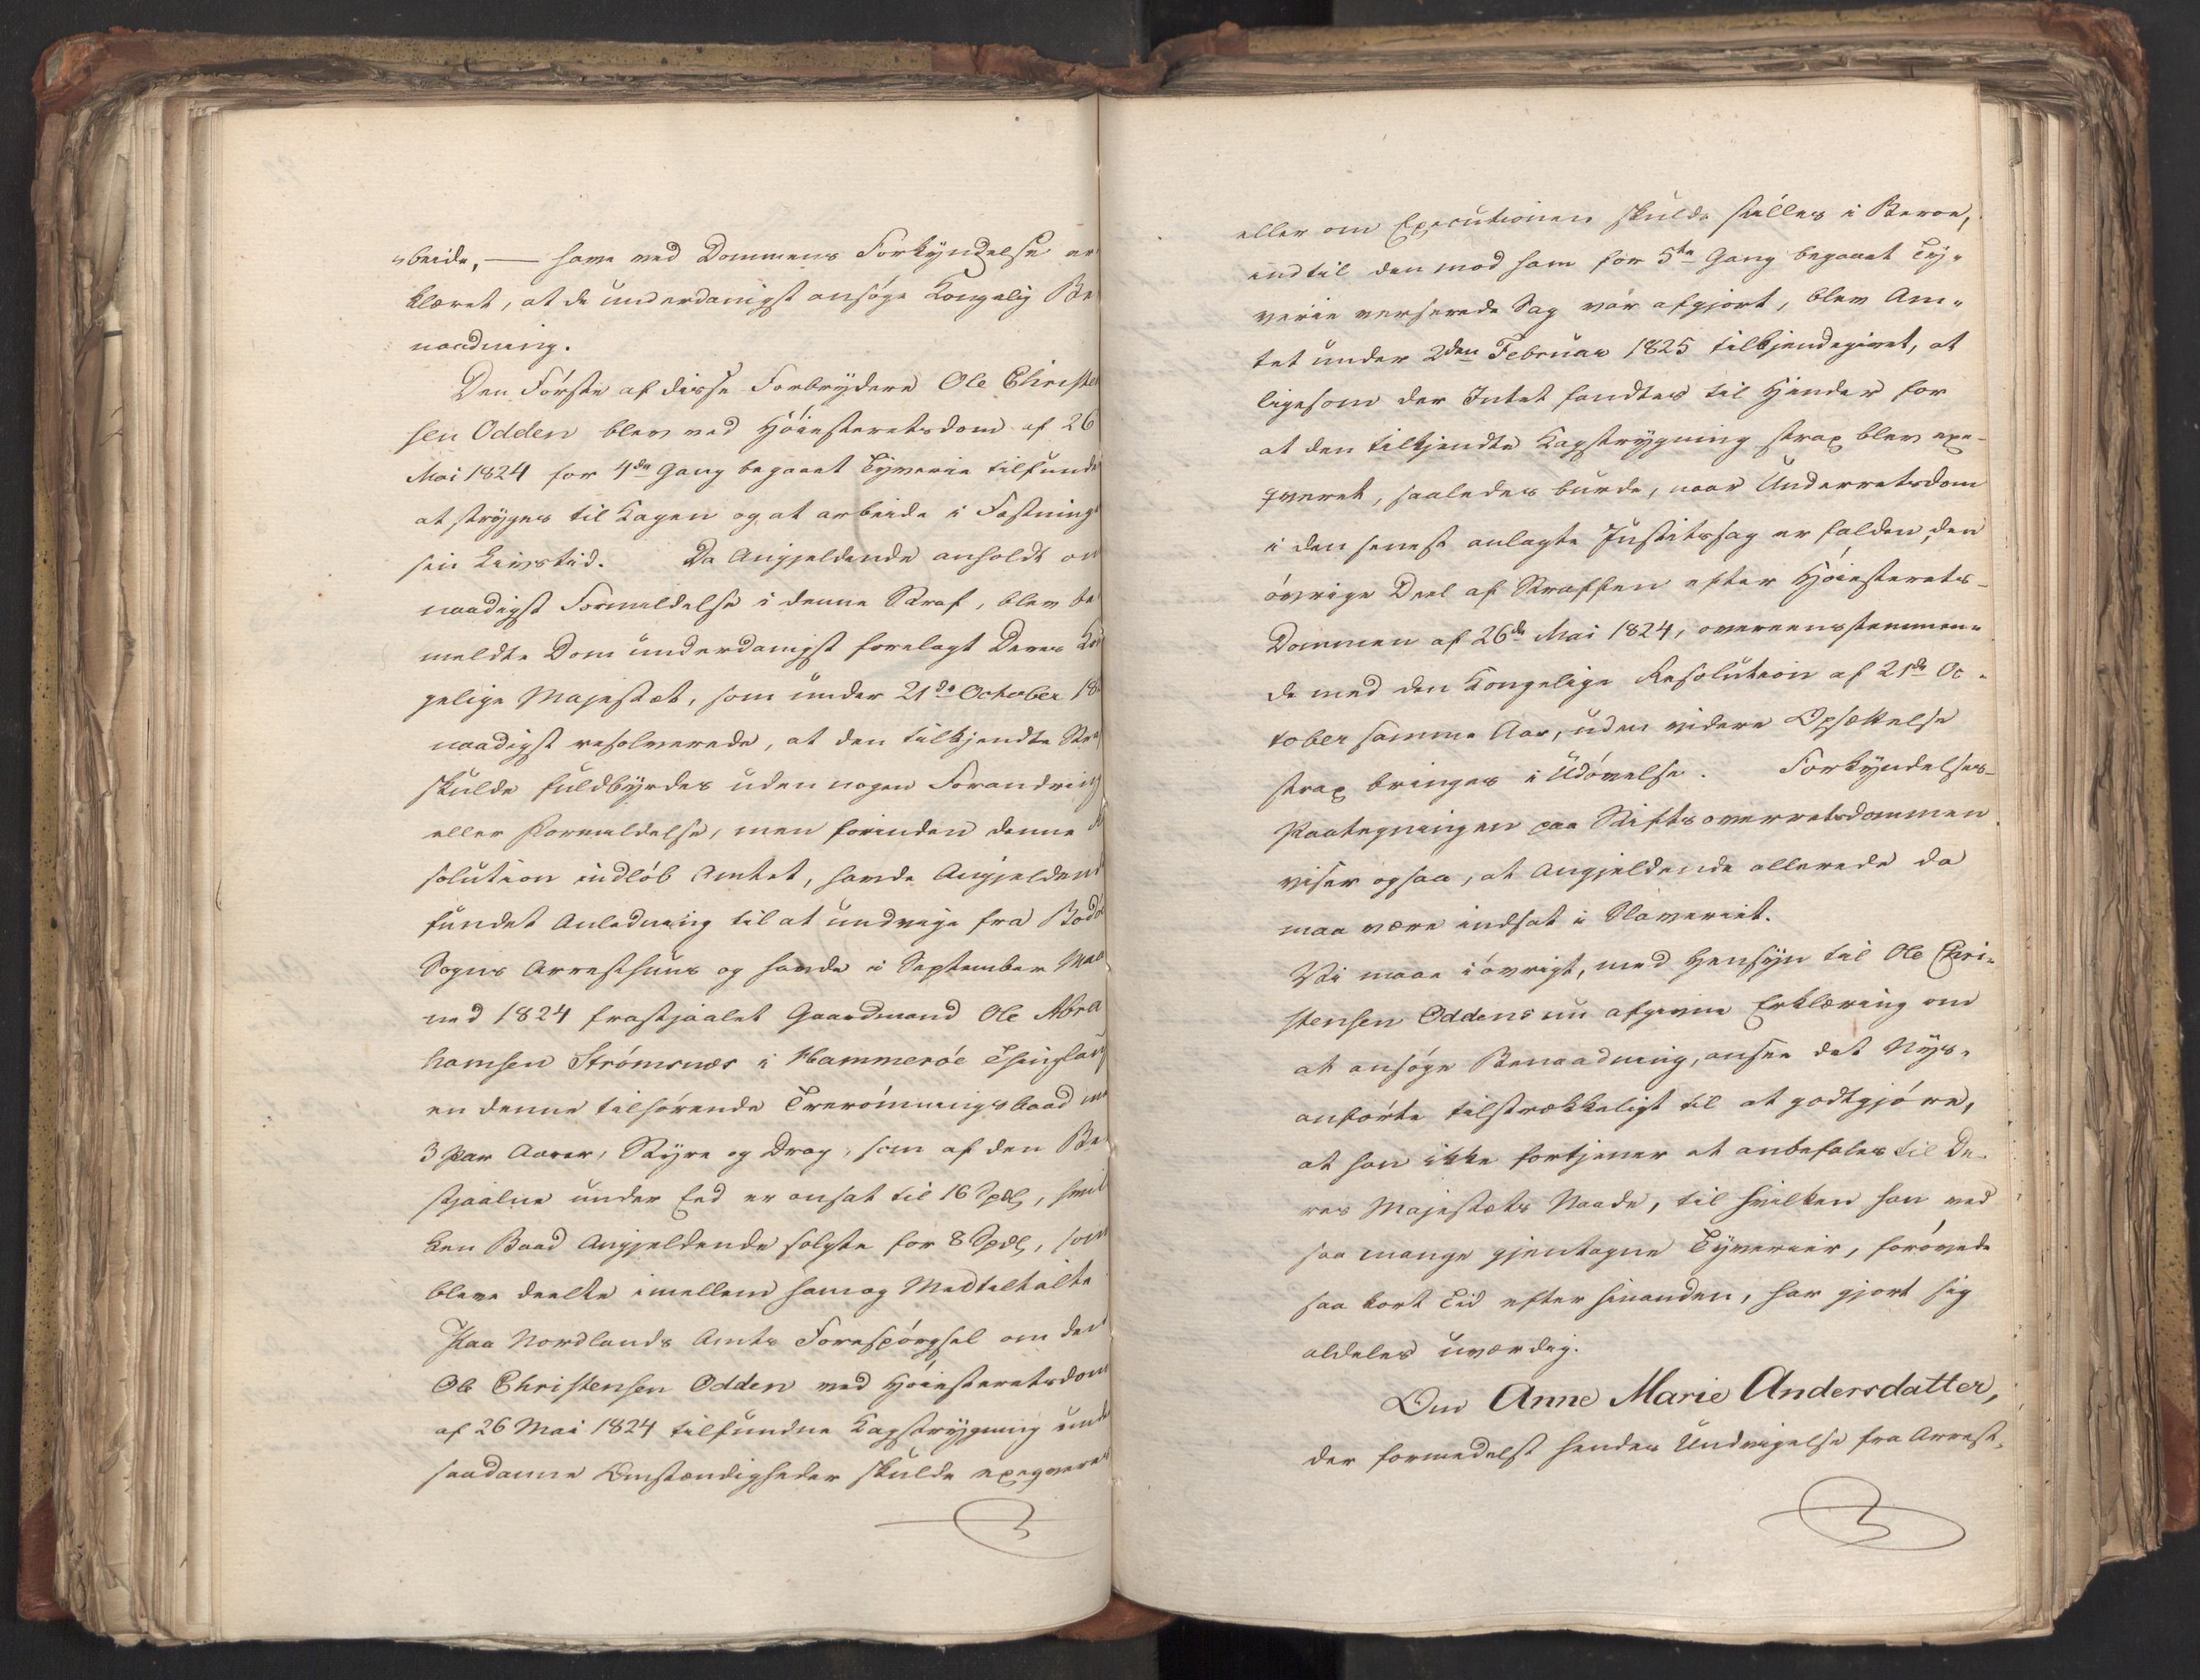 arbeide, — have ved Dommens Forkyndelse er
klæret, at de underdanigst ansøge Kongelig Be
naadning.
Den Første af disse Forbrydere Ole Christen
sen Odden blev ved Høiesteretsdom af 26
Mai 1824 for 4de Gang begaaet Tyverie tilfunde
at stryges til Kagen og at arbeide i Fæstning
sin Livstid. Da Angjeldende anholdt om
naadigst Formildelse i denne Straf, blev be
meldte Dom underdanigst forelagt Deres Kon
gelige Majestæt, som under 21de October 18
naadigst resolverede, at den tilkjendte Stra
skulde fuldbyrdes uden nogen Forandring
eller Formildelse, men forinden denne Re
solution indløb Amtet, havde Angjeldend
fundet Anledning til at undvige fra Bodø
Sogns Arresthuus og havde i September Maa
ned 1824 frastjaalet Gaardmand Ole Abra
hamsen Strømsnæs i Hammerøe Thinglaug
en denne tilhørende Trerømmingsbaad med
3 Par Aarer, Styre og Drag, som af den Be
stjaalne under Eed er ansat til 16 Spdl, hvil
ken Baad Angjeldende solgte for 8 Spdl, som
bleve deelte imellem ham og Medtiltalte
Paa Nordlands Amts Forespørgsel om den
Ole Christensen Odden ved Høiesteretsdom
af 26 Mai 1824 tilfundne Kagstrygning unde
saadanne Omstændigheder skulde exeqveres
eller om Executionen skulde stilles i Beroe,
indtil den mod ham for 5te Gang begaaet Ty-
verie verserede Sag var afgjort, blev Am-
tet under 2den Februar 1825 tilkjendegivet, at
ligesom der Intet fandtes til Hinder for
at den tilkjendte Kagstrygning strax blev exe-
qveret, saaledes burde, naar Underretsdom
i den senest anlagte Justitssag er falden, den
øvrige Deel af Straffen efter Høiesterets-
Dommen af 26de Mai 1824, overeenstemmen-
de med den Kongelige Resolution af 21de Oc-
tober samme Aar, uden videre Opsættelse
strax bringes i Udøvelse. Forkyndelses-
Paategningen paa Stiftsoverretsdommen
viser ogsaa, at Angjeldende allerede da
maa være indsat i Slaveriet.
Vi maae iøvrigt, med Hensyn til Ole Chri-
stensen Oddens nu afgivne Erklæring om
at ansøge Benaadning, ansee det Nys-
anførte tilstrækkeligt til at godtgjøre,
at han ikke fortjener at anbefales til De-
res Majestæts Naade, til hvilken han ved
saa mange gjentagne Tyverier, forøvede
saa kort Tid efter hinanden, har gjort sig
aldeles uværdig.
Om Anne Marie Andersdatter,
der formedelst hendes Undvigelse fra Arrest-